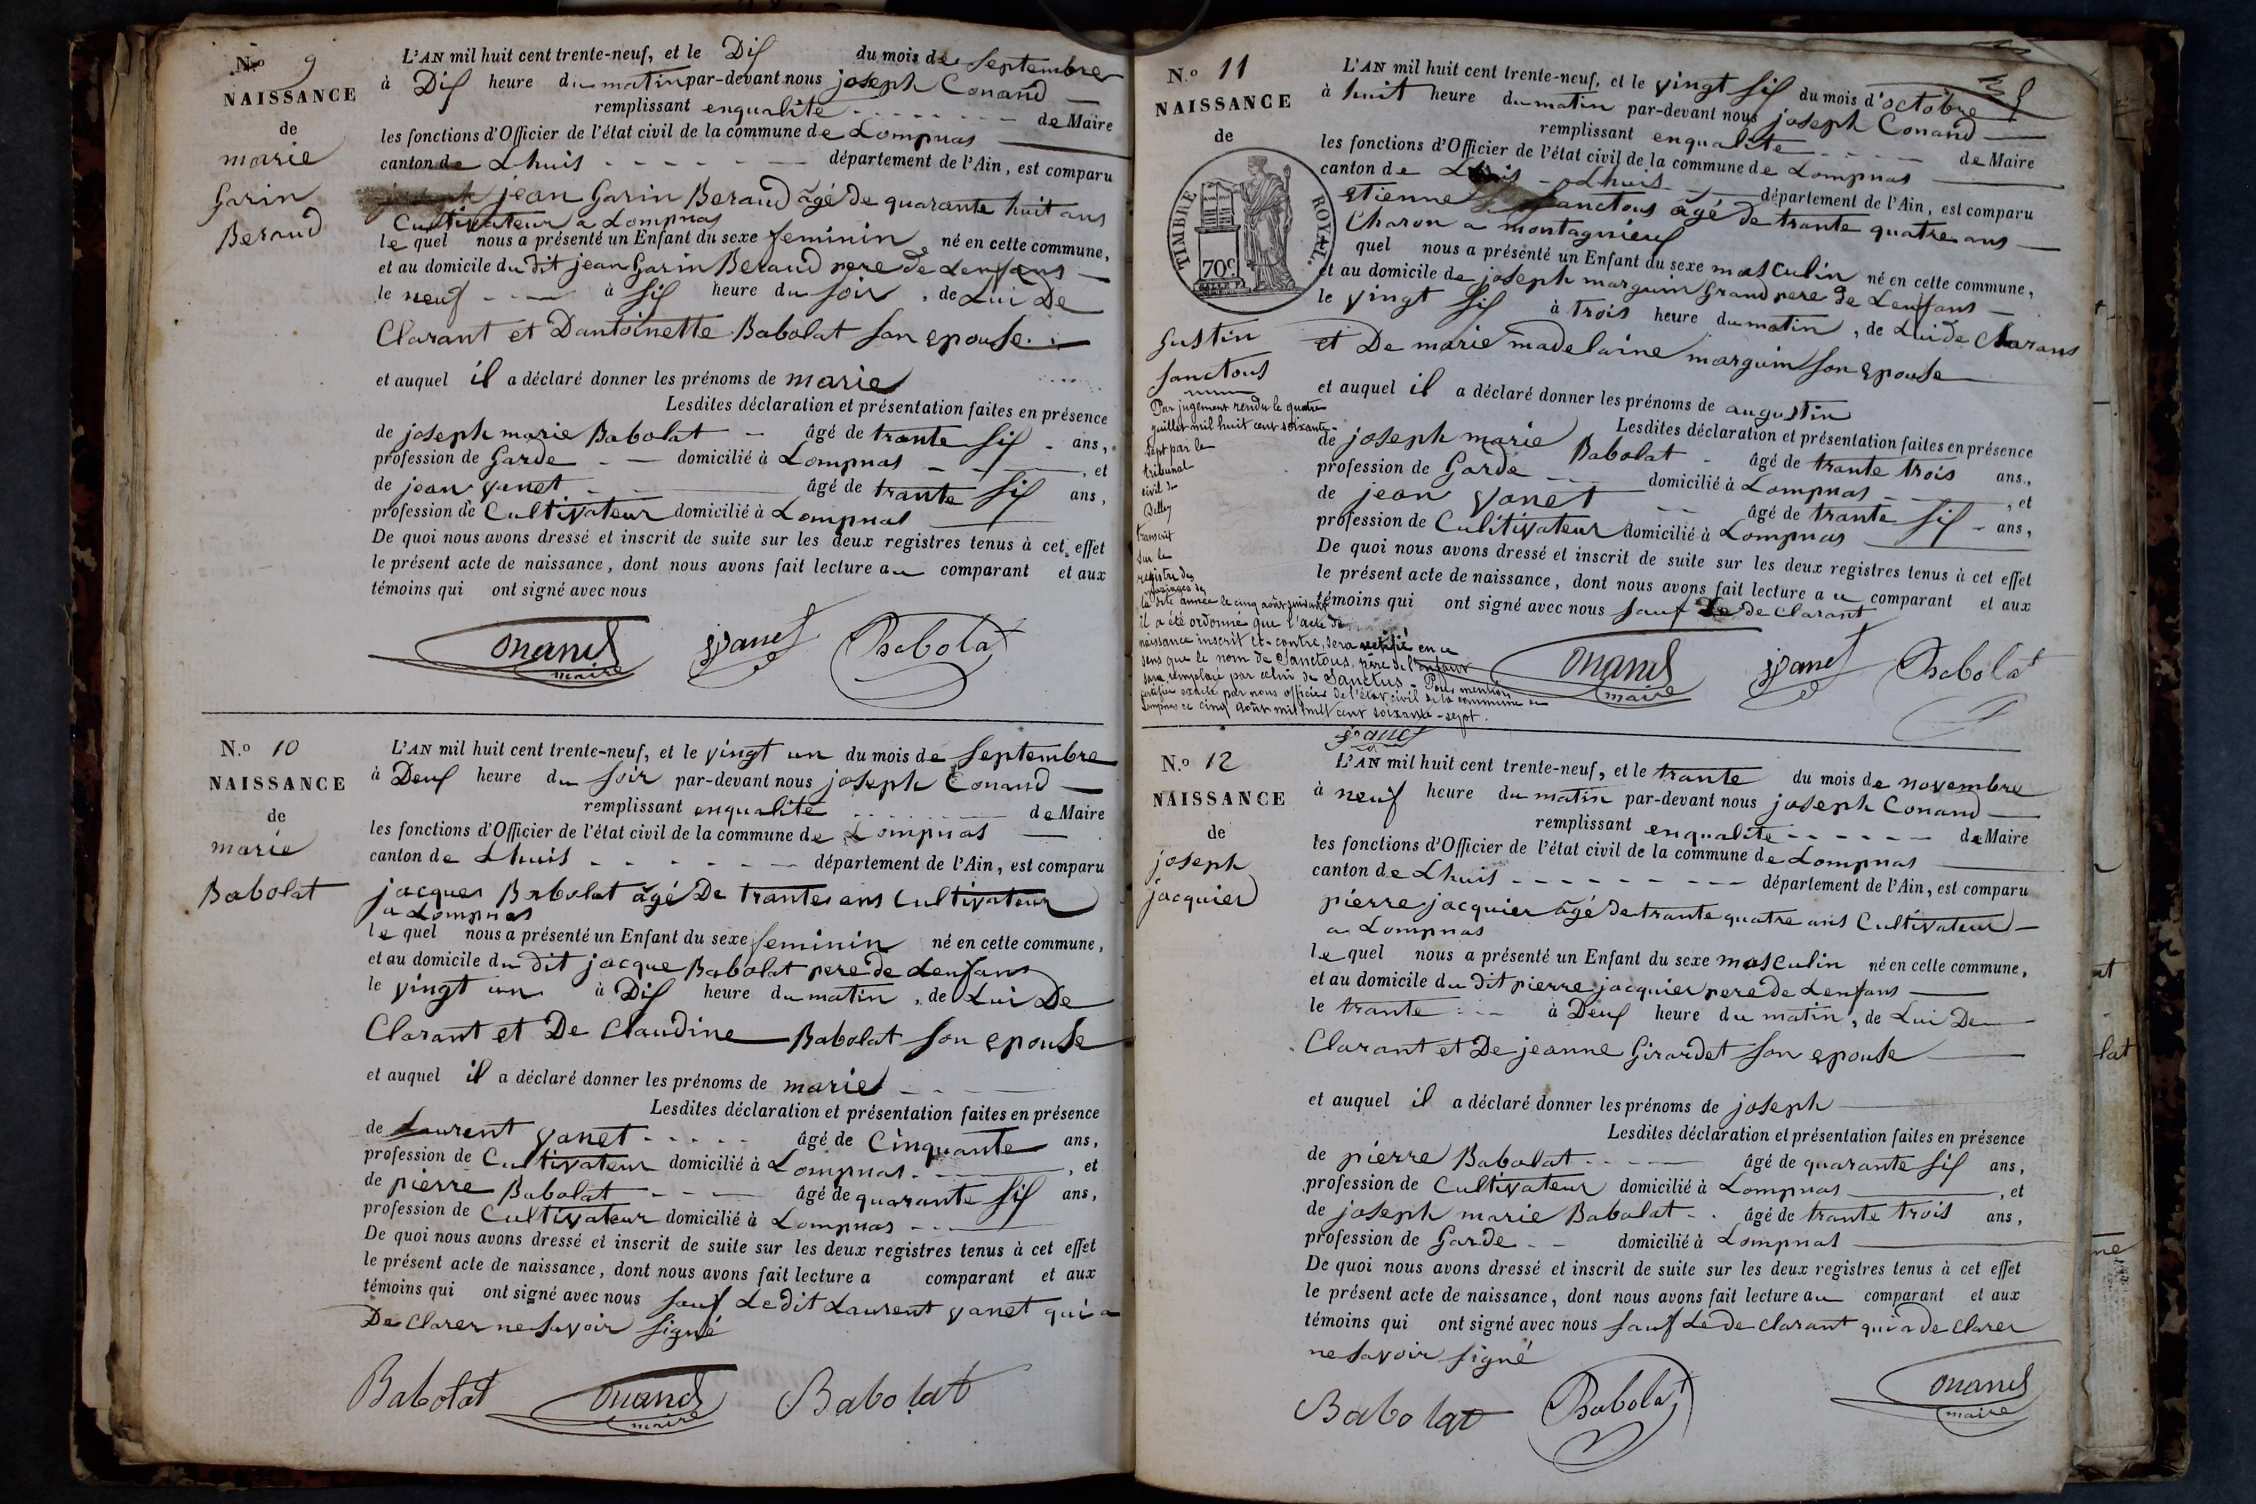 N.o 9
NAISSANCE
de
marie
Garin
Beraud
L'AN mil huit cent trente-neuf, et le Dix du mois de septembre
à Dix heure du matin par-devant nous joseph Conand
remplissant enqualité de Maire
les fonctions d'Officier de l'état civil de la commune de Lompnas
canton de Lhuis département de l'Ain, est comparu
jean Garin Beraud âgé de quarante huit ans
Cultivateur a Lompnas
le quel nous a présenté un Enfant du sexe feminin né en cette commune,
et au domicile du dit jean Garin Beraud pere de Lenfans
le neuf à six heure du soir, de Lui De
Clarant et Dantoinette Babolat son epouse
et auquel il a déclaré donner les prénoms de marie
Lesdites déclaration et présentation faites en présence
de joseph marie Babolat âgé de trante six ans,
profession de Garde domicilié à Lompnas, et
de jean vanet âgé de trante six ans,
profession de Cultivateur domicilié à Lompnas
De quoi nous avons dressé et inscrit de suite sur les deux registres tenus à cet effet
le présent acte de naissance, dont nous avons fait lecture au comparant et aux
témoins qui ont signé avec nous
Conand maire jvanet Babolat
N.o 10
NAISSANCE
de
marie
Babolat
L'AN mil huit cent trente-neuf, et le vingt un du mois de septembre
à Deux heure du soir par-devant nous joseph Conand
remplissant enqualité de Maire
les fonctions d'Officier de l'état civil de la commune de Lompnas
canton de Lhuis département de l'Ain, est comparu
jacques Babolat âgé De trante ans Cultivateur
a Lompnas
le quel nous a présenté un Enfant du sexe feminin né en cette commune,
et au domicile du dit jacque Babolat pere de Lenfans
le vingt un à Dix heure du matin, de Lui De
Clarant et De Claudine Babolat son epouse
et auquel il a déclaré donner les prénoms de marie
Lesdites déclaration et présentation faites en présence
de Laurent vanet âgé de Cinquante ans,
profession de Cultivateur domicilié à Lompnas, et
de pierre Babolat âgé de quarante six ans,
profession de Cultivateur domicilié à Lompnas
De quoi nous avons dressé et inscrit de suite sur les deux registres tenus à cet effet
le présent acte de naissance, dont nous avons fait lecture a comparant et aux
témoins qui ont signé avec nous sauf Ledit Laurent vanet qui a
De clarer ne savoir signé
Babolat Conand maire Babolat
N.o 11
NAISSANCE
de
TIMBRE ROYAL.
70c
L'AN mil huit cent trente-neuf, et le vingt six du mois d'octobre
à huit heure du matin par-devant nous joseph Conand
remplissant enqualité de Maire
les fonctions d'Officier de l'état civil de la commune de Lompnas
canton de Lhuis département de l'Ain, est comparu
etienne sanctous âgé de trante quatre ans
Charon a montagnieux
quel nous a présenté un Enfant du sexe masculin né en cette commune,
et au domicile de joseph marguin Grand pere de Lenfans
le vingt six à trois heure du matin, de Lui de Clarans
et De marie madelaine marguin son epouse
et auquel il a déclaré donner les prénoms de augustin
Lesdites déclaration et présentation faites en présence
de joseph marie Babolat âgé de trante trois ans,
profession de Garde domicilié à Lompnas, et
de jean vanet âgé de trante six ans,
profession de Cultivateur domicilié à Lompnas
De quoi nous avons dressé et inscrit de suite sur les deux registres tenus à cet effet
le présent acte de naissance, dont nous avons fait lecture au comparant et aux
témoins qui ont signé avec nous sauf Le de clarant
Gustin
sanctous
Par jugement rendu le quatre
juillet mil huit cent soixante-
sept par le
tribunal
civil de
Belley
transcrit
sur le
registre des
mariages de
la dite année le cinq août suivant
il a été ordonné que l'acte de
naissance inscrit ci-contre, sera rectifié en ce
sens que le nom de Sanctous, père de l'enfant
sera remplacé par celui de Sanctus. Pour mention
certifiée exacte par nous officier de l'état civil de la commune de
Lompnas ce cinq août mil huit cent soixante-sept.
Conand maire jvanet Babolat
N.o 12
NAISSANCE
de
joseph
jacquier
L'AN mil huit cent trente-neuf, et le trante du mois de novembre
à neuf heure du matin par-devant nous joseph Conand
remplissant enqualité de Maire
les fonctions d'Officier de l'état civil de la commune de Lompnas
canton de Lhuis département de l'Ain, est comparu
pierre jacquier âgé de trante quatre ans Cultivateur
a Lompnas
le quel nous a présenté un Enfant du sexe masculin né en cette commune,
et au domicile du dit pierre jacquier pere de Lenfans
le trante à Deux heure du matin, de Lui De
Clarant et De jeanne Girardet son epouse
et auquel il a déclaré donner les prénoms de joseph
Lesdites déclaration et présentation faites en présence
de pierre Babolat âgé de quarante six ans,
profession de Cultivateur domicilié à Lompnas, et
de joseph marie Babolat âgé de trante trois ans,
profession de Garde domicilié à Lompnas
De quoi nous avons dressé et inscrit de suite sur les deux registres tenus à cet effet
le présent acte de naissance, dont nous avons fait lecture au comparant et aux
témoins qui ont signé avec nous sauf Le de clarant qui a de clarer
ne savoir signé
Babolat Babolat Conand maire